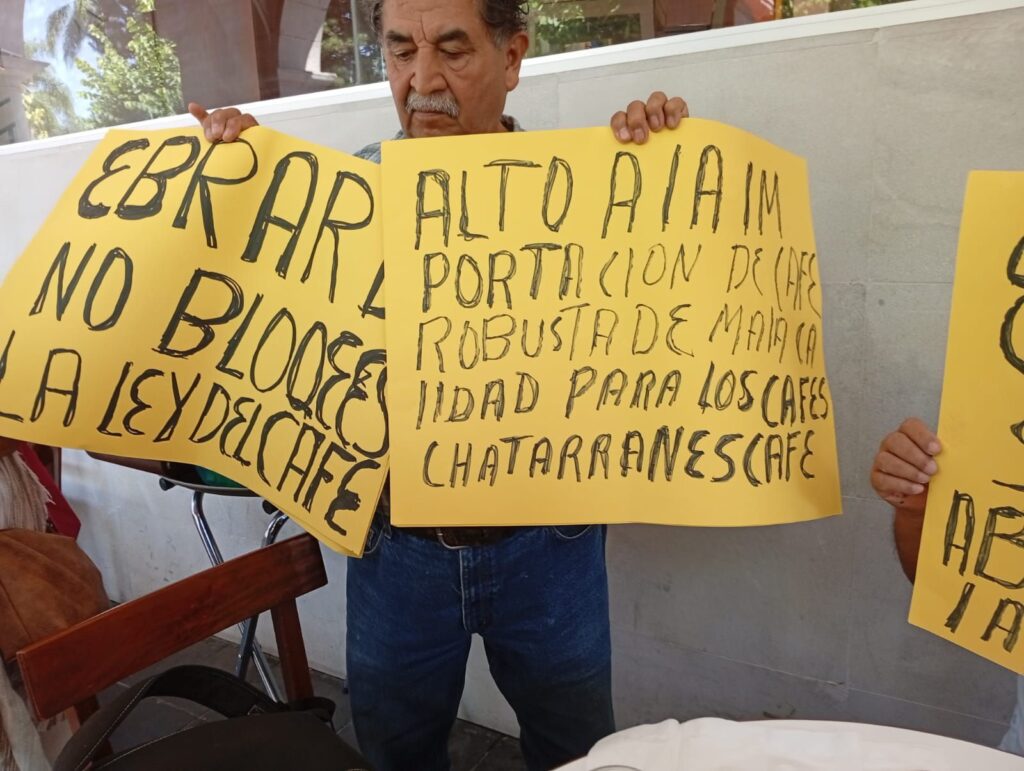 EBRARD
NO BLOQEES
LA LEY DEL CAFE
ALTO A lA IM
PORTACION DE CAFE
ROBUSTA DE MAlA CA
lIDAD PARA LOS CAFES
CHATARRA NESCAFE
AB
lA